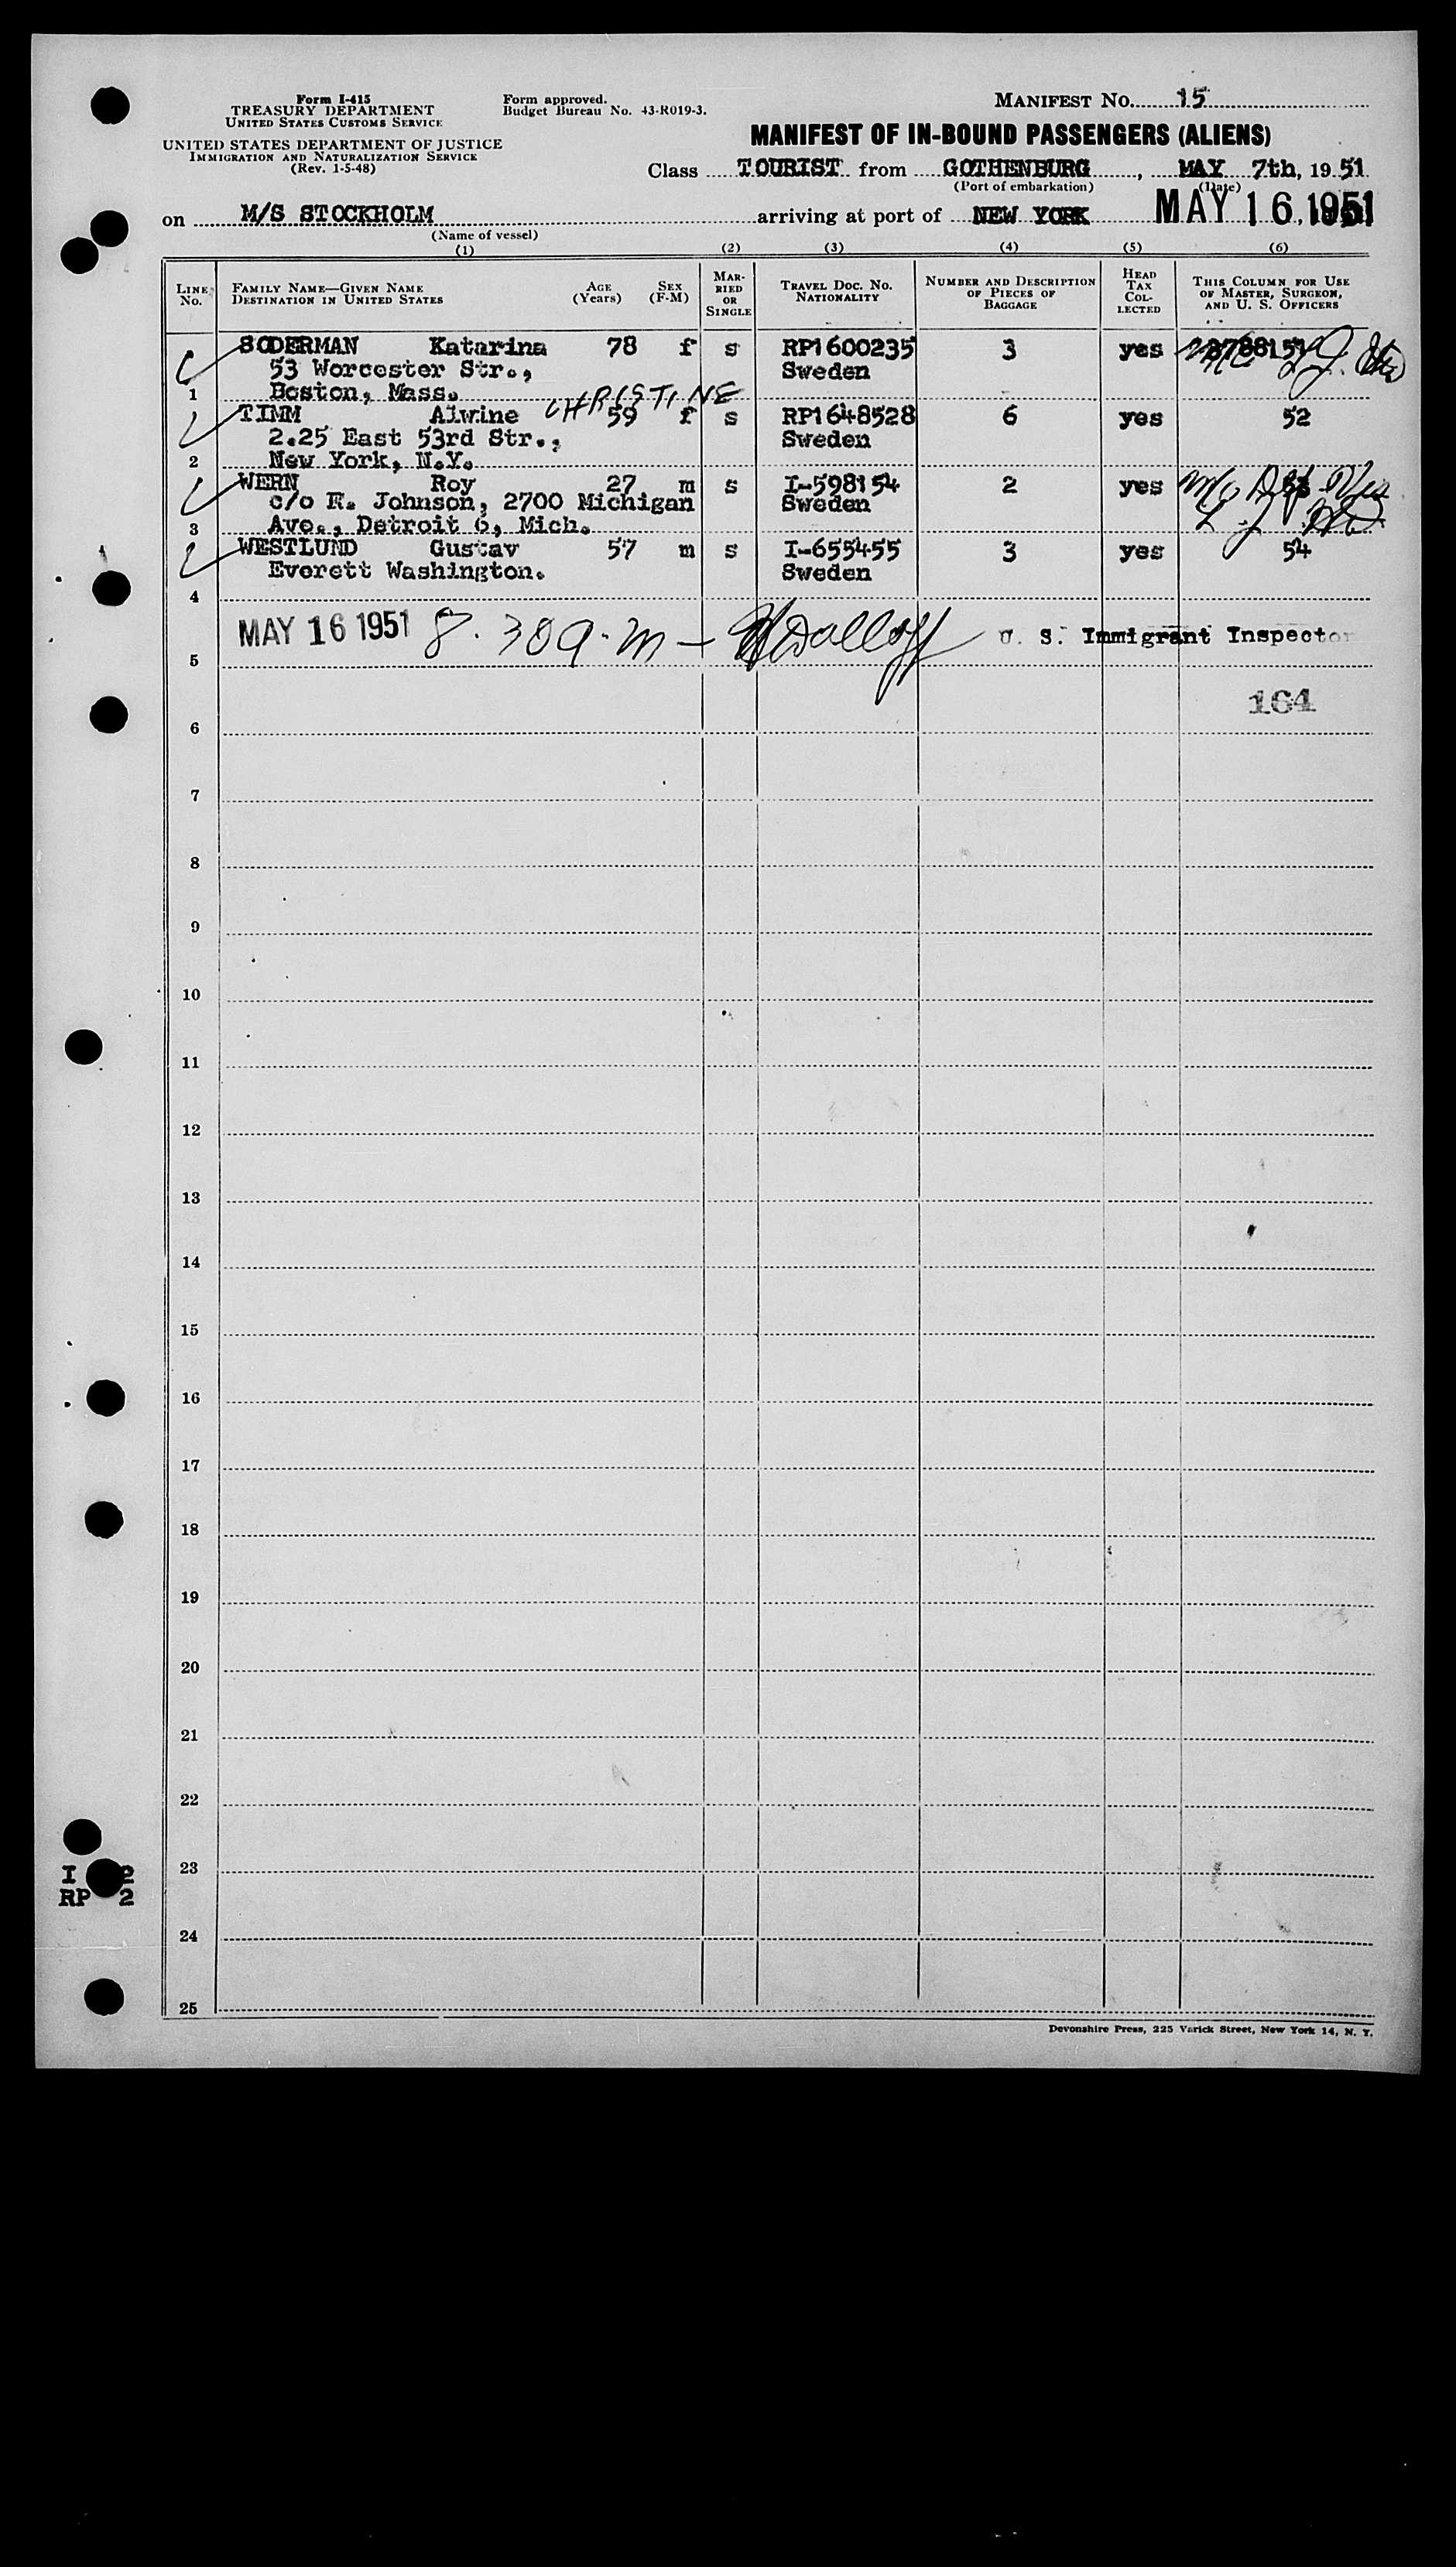 Form I-415
TREASURY DEPARTMENT
UNITED STATES CUSTOMS SERVICE
UNITED STATES DEPARTMENT OF JUSTICE
IMMIGRATION AND NATURALIZATION SERVICE
(Rev. 1-5-48)
Form approved.
Budget Bureau No. 43-R019-3.
MANIFEST No. 15
MANIFEST OF IN-BOUND PASSENGERS (ALIENS)
Class TOURIST from GOTHENBURG, MAY 7th, 1951
(Port of embarkation) (Date)
on M/S STOCKHOLM arriving at port of NEW YORK MAY 16, 1951
(Name of vessel)
(1) (2) (3) (4) (5) (6)
LINE No. FAMILY NAME—GIVEN NAME DESTINATION IN UNITED STATES AGE (Years) SEX (F-M) MARRIED OR SINGLE TRAVEL DOC. NO. NATIONALITY NUMBER AND DESCRIPTION OF PIECES OF BAGGAGE HEAD TAX COLLECTED THIS COLUMN FOR USE OF MASTER, SURGEON, AND U. S. OFFICERS
SODERMAN Katarina 78 f s RP1600235 3 yes
53 Worcester Str., Sweden
1 Boston, Mass.
CHRISTINE
TIMM Alwine 59 f s RP1648528 6 yes 52
2.25 East 53rd Str., Sweden
2 New York, N.Y.
WERN Roy 27 m s I-598154 2 yes
c/o E. Johnson, 2700 Michigan Sweden
3 Ave., Detroit 6, Mich.
WESTLUND Gustav 57 m s I-655455 3 yes 54
Everett Washington. Sweden
4
MAY 16 1951 8.30 a.m — U. S. Immigrant Inspector
5
164
6
7
8
9
10
11
12
13
14
15
16
17
18
19
20
21
22
I 2 23
RP 2
24
25
Devonshire Press, 225 Varick Street, New York 14, N. Y.